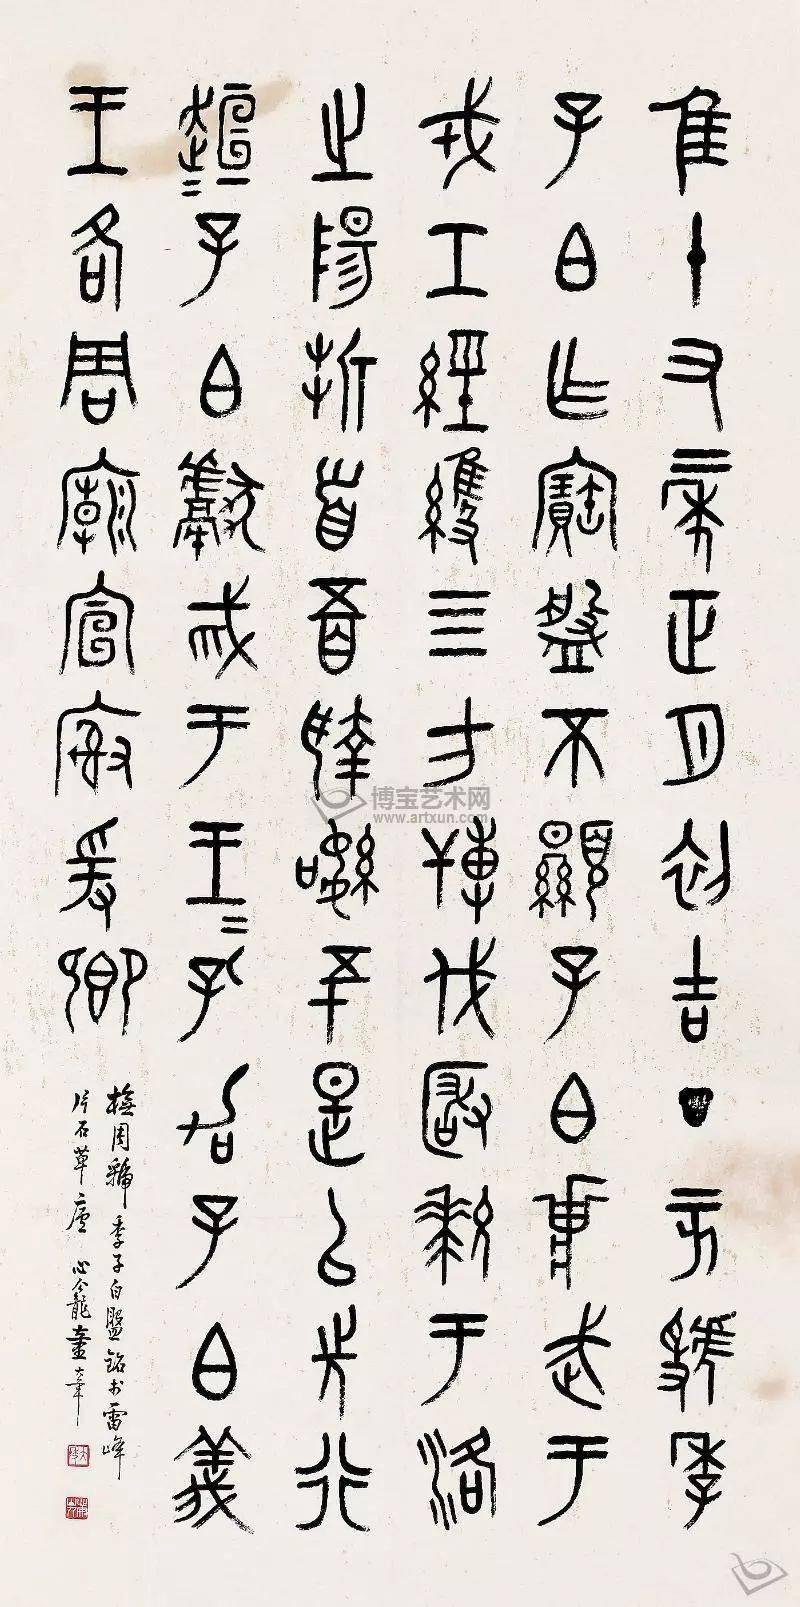 隹十又二年正月初吉丁亥虢季
子白乍寶盤不顯子白𤕌武于
戎工經維三方博伐玁狁于洛
之陽折首五百執訊五十是以先行
趄=子白獻馘于王=孔加子白義
王各周廟宣廟爰卿
橅周虢季子白盤銘於雷峰
片石草廬 心龕童大年
博宝艺术网
www.artxun.com